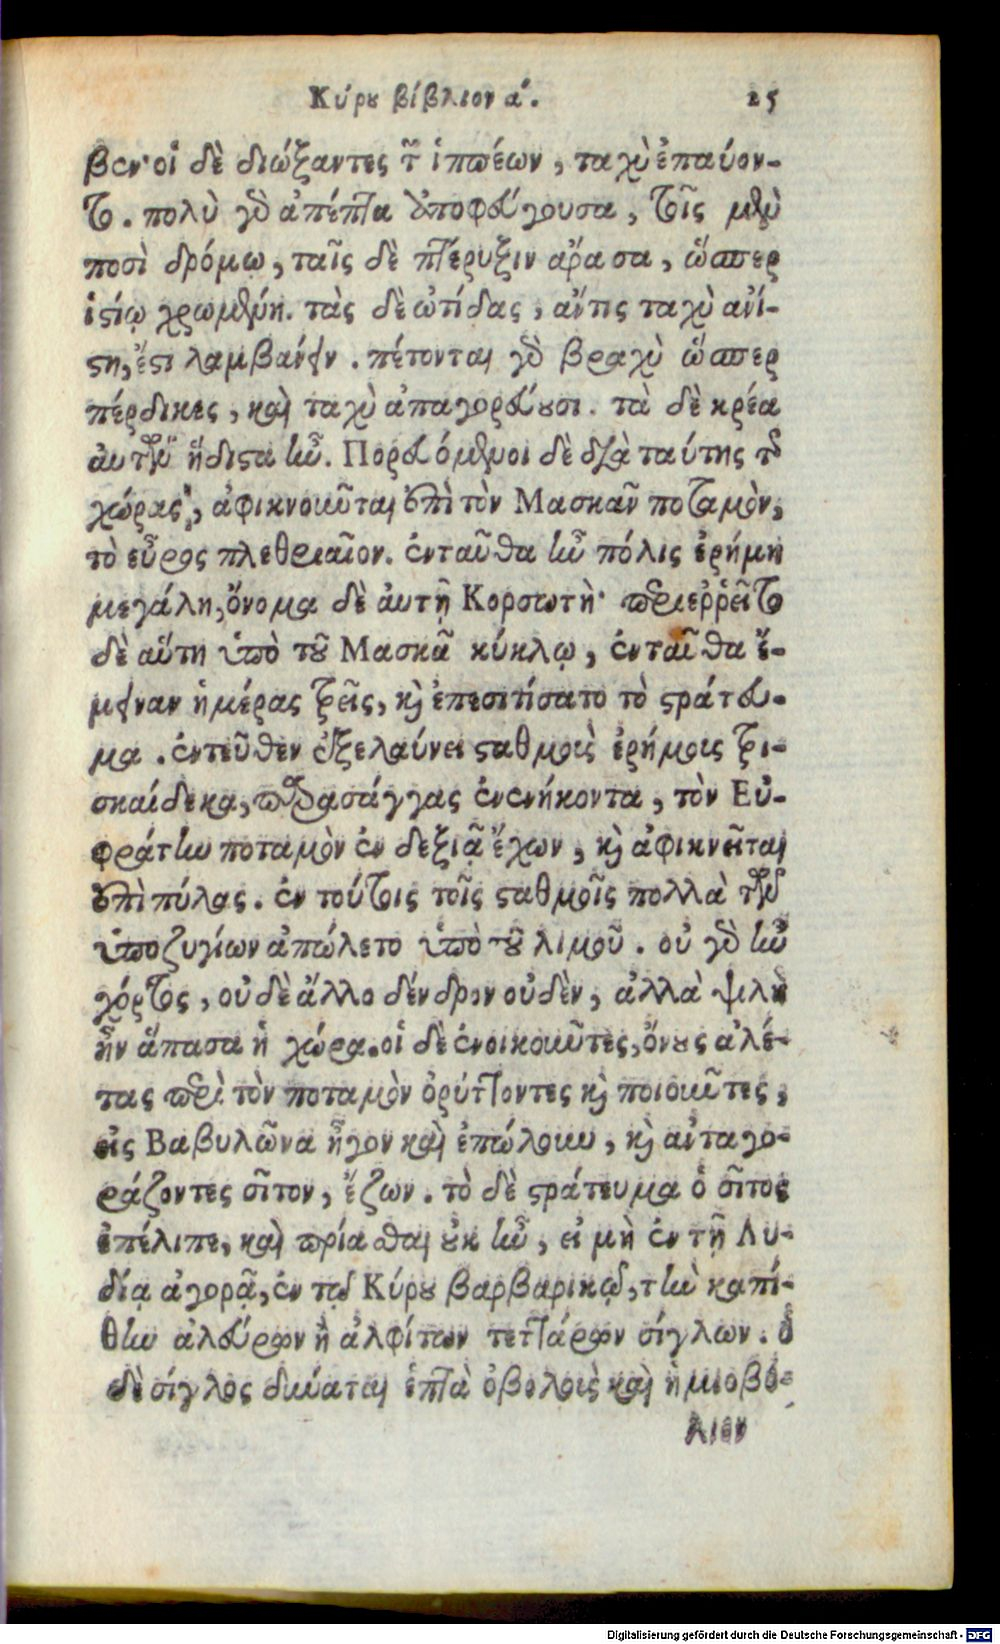 Κύρου βίβλιον α'. 25
βεν· οἱ δὲ διώξαντες τῶν ἱππέων, ταχὺ ἐπαύον-
το. πολὺ γὰρ ἀπέπτα ἀποφεύγουσα, τοῖς μὲν
ποσὶ δρόμῳ, ταῖς δὲ πτέρυξιν ἄρασα, ὥσπερ
ἱστίῳ χρωμένη. τὰς δὲ ὠτίδας, ἄν τις ταχὺ ἀνί-
στη, ἔστι λαμβάνειν. πέτονται γὰρ βραχὺ ὥσπερ
πέρδικες, καὶ ταχὺ ἀπαγορεύουσι. τὰ δὲ κρέα
αὐτῶν ἥδιστα ἦν. Πορευόμενοι δὲ διὰ ταύτης τῆς
χώρας, ἀφικνοῦνται ἐπὶ τὸν Μασκᾶν ποταμὸν,
τὸ εὖρος πλεθριαῖον. ἐνταῦθα ἦν πόλις ἐρήμη
μεγάλη, ὄνομα δὲ αὐτῇ Κορσωτὴ· περιεῤῥεῖτο
δὲ αὕτη ὑπὸ τοῦ Μασκᾶ κύκλῳ, ἐνταῦθα ἔ-
μειναν ἡμέρας τρεῖς, καὶ ἐπεσιτίσατο τὸ στράτευ-
μα. ἐντεῦθεν ἐξελαύνει σταθμοὺς ἐρήμους τρι-
σκαίδεκα, παρασάγγας ἐνενήκοντα, τὸν Εὐ-
φράτην ποταμὸν ἐν δεξιᾷ ἔχων, καὶ ἀφικνεῖται
ἐπὶ πύλας. ἐν τούτοις τοῖς σταθμοῖς πολλὰ τῶν
ὑποζυγίων ἀπώλετο ὑπὸ τοῦ λιμοῦ. οὐ γὰρ ἦν
χόρτος, οὐδὲ ἄλλο δένδρον οὐδὲν, ἀλλὰ ψιλὴ
ἦν ἅπασα ἡ χώρα. οἱ δὲ ἐνοικοῦντες, ὄνους ἀλέ-
τας περὶ τὸν ποταμὸν ὀρύττοντες καὶ ποιοῦντες,
εἰς Βαβυλῶνα ἦγον καὶ ἐπώλουν, καὶ ἀνταγο-
ράζοντες σῖτον, ἔζων. τὸ δὲ στράτευμα ὁ σῖτος
ἐπέλιπε, καὶ πρίασθαι οὐκ ἦν, εἰ μὴ ἐν τῇ Λυ-
δίᾳ ἀγορᾷ, ἐν τῷ Κύρου βαρβαρικῷ, τὴν καπί-
θην ἀλεύρων ἢ ἀλφίτων τεττάρων σίγλων. ὁ
δὲ σίγλος δύναται ἑπτὰ ὀβολοὺς καὶ ἡμιοβό-
λιον
Digitalisierung gefördert durch die Deutsche Forschungsgemeinschaft - DFG